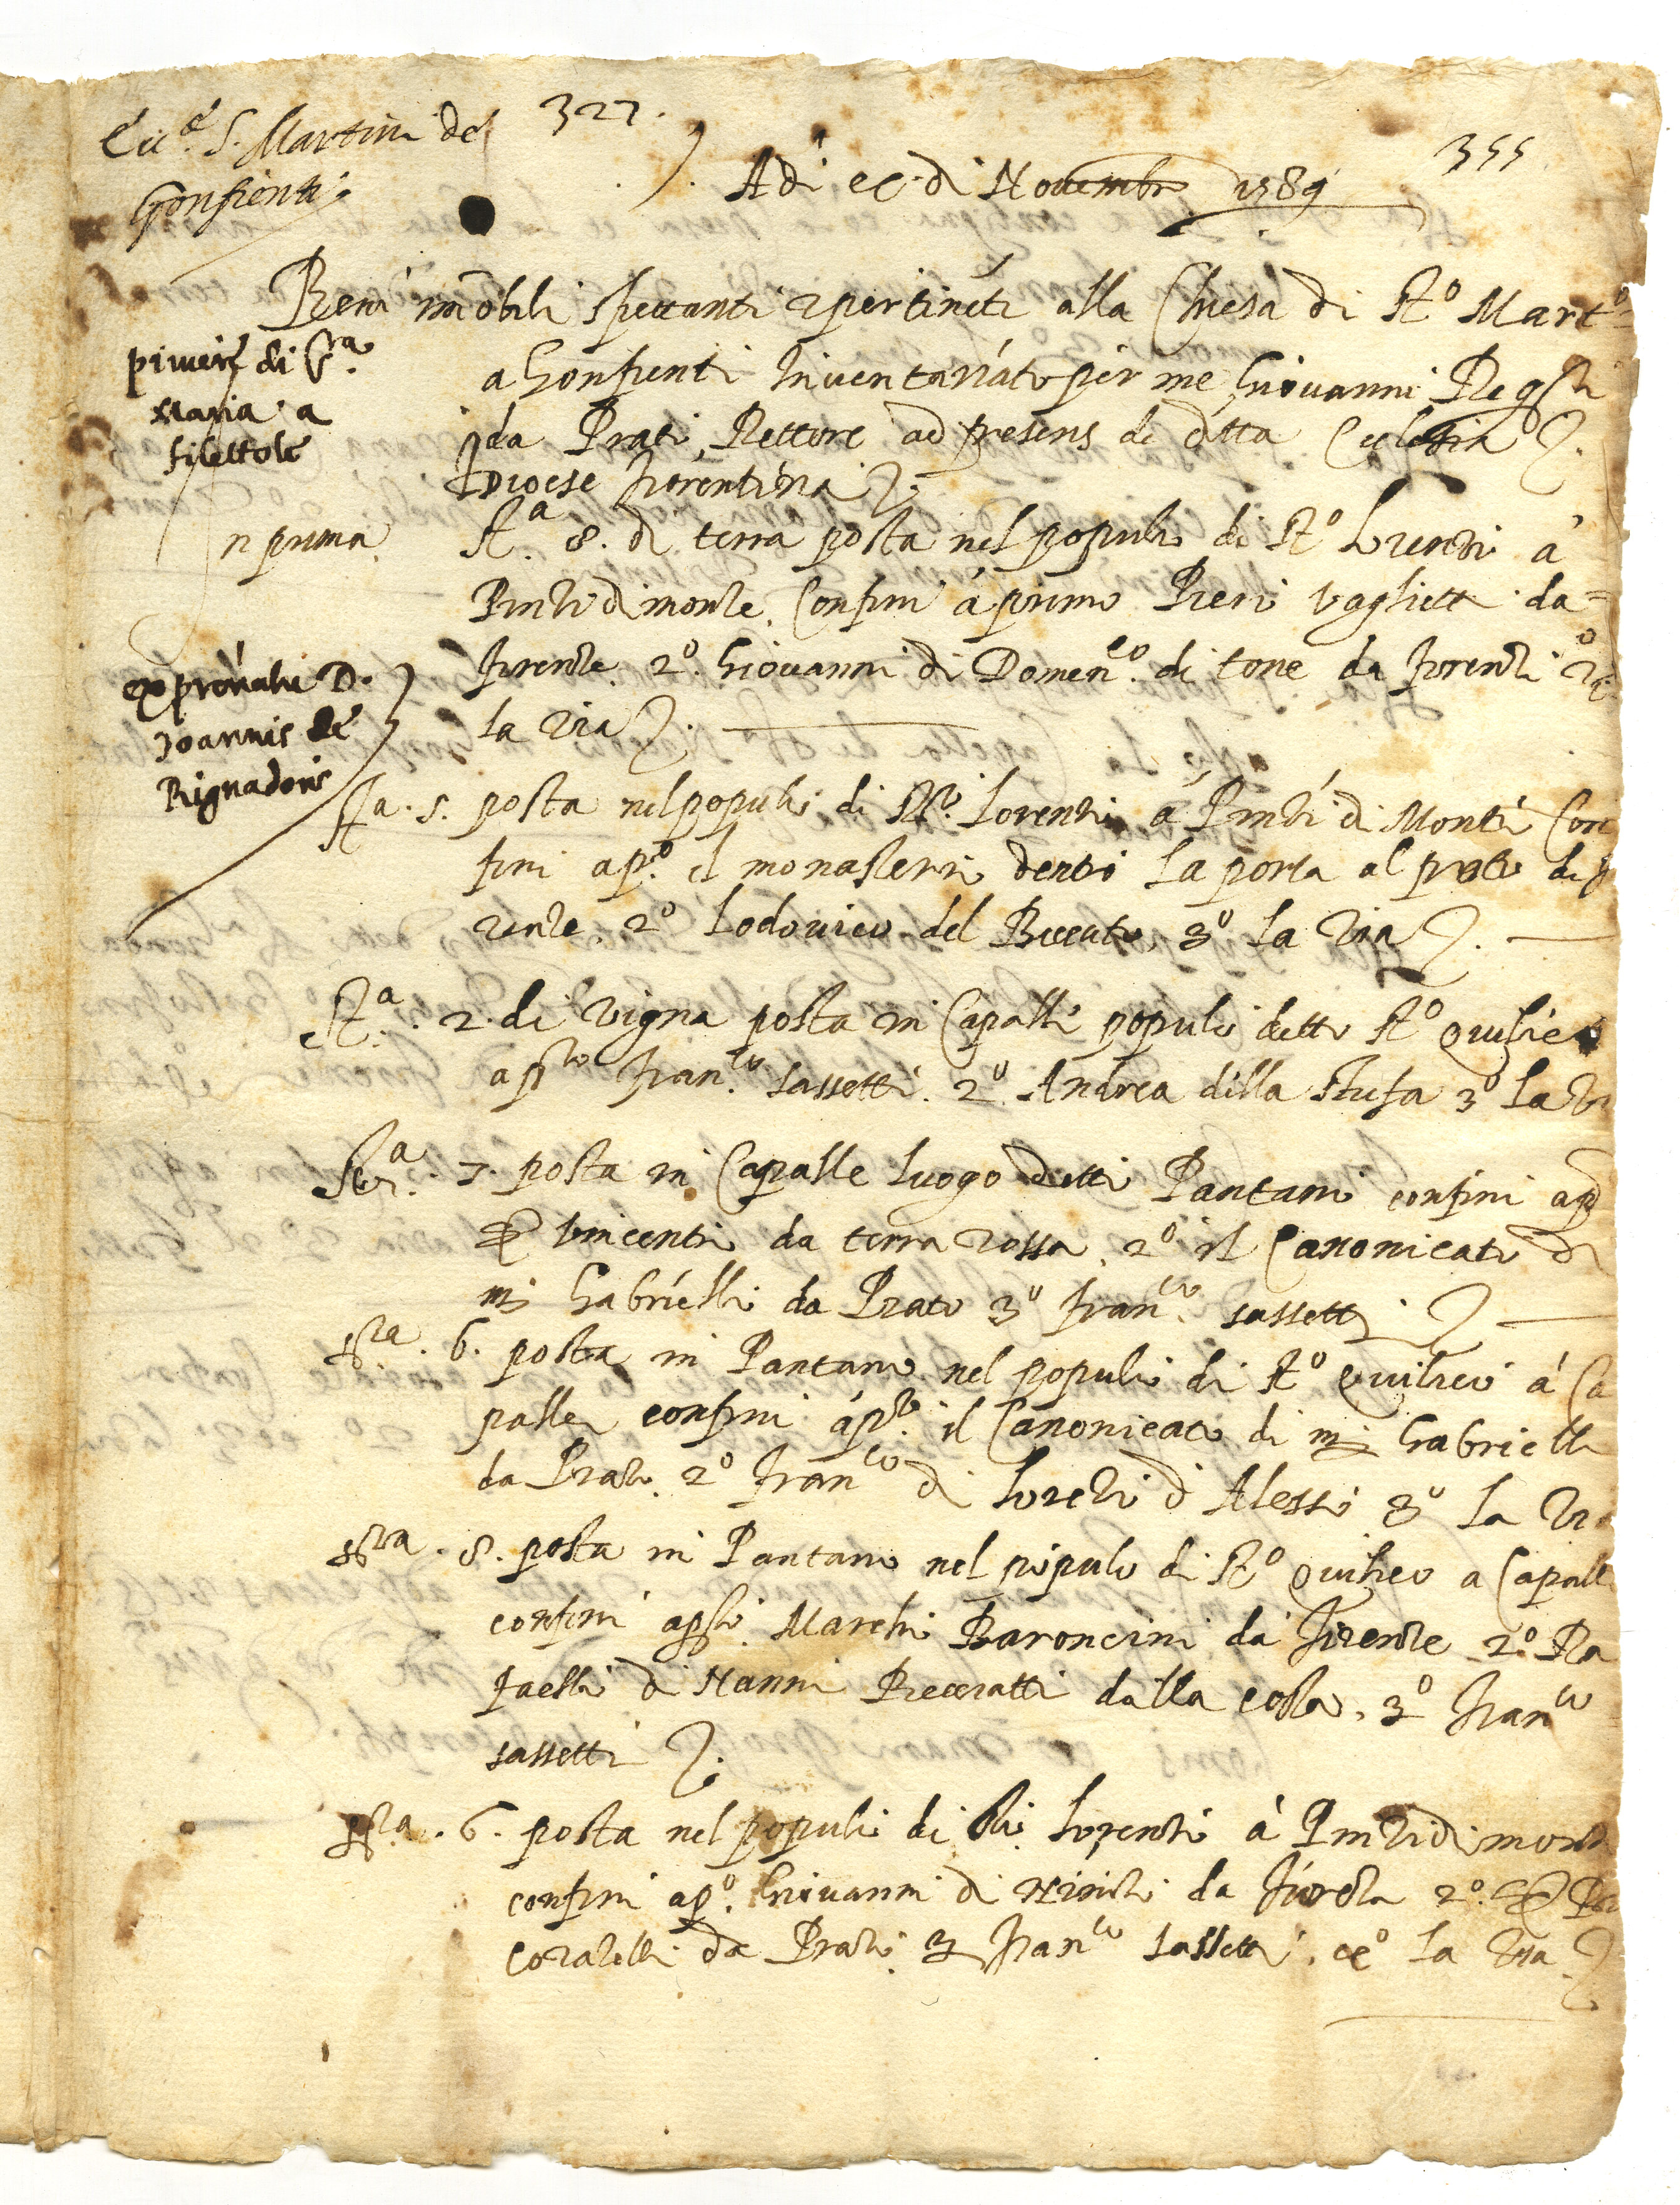 Ecc.ª S. Martini de
Gonfienti
327.
355
Adi ec. di Novembre 1589
Beni imobili spettanti & pertineti alla Chiesa di Sto Marto
piviere di S.ra
Maria a
filettole
a Gonfienti Inventariato per me Giovanni
da Prato Rettore ad presens di ditta Ecclesia
Diocese fiorentina
n prima
St.a 8. di terra posta nel populo di Sto Lorenzo à
Pinzidimonte Confini à primo Pieri Vaglietti da=
firenze. 2o. Giovanni di Domen.co di tone da firenze
la via
ex prònatu D.
Joannis de
Rignadoris
St.a. 5. posta nel populo di Sto. Lorenzo à Pinzi di Monte Con
fini ap.o il monasterio dentro la porta al prato di fi
renze. 2o Lodovico del Beccuto, 3o la via
St.a. 2. di vigna posta in Capalle populo detto Sto Quilico
ap.to fran.co sassetti. 2o Andrea della stufa 3o la vi
Sta. 7. posta in Capalle luogo detto Pantano confini ap
Vincentio da terra rossa. 2o il Canonicato di
m Gabriello da Prato 3o fran.co sassetti
sta. 6. posta in Pantano nel populo di Sto Quilico à Ca
palle confini àp.to il Canonicato di m Gabriello
da Prato. 2o fran.co di Lorezo d Alesso 3o la via
sta. 8. posta in Pantano nel populo di Sto Quilico a Capalle
confini Marcho Baroncini da firenze 2o. Ra
faello di Nanni dalla costa, 3o fran.co
sassetti
sta. 6. posta nel populo di Sto Lorenzo à Pinzidimonte
confini ap.o. Giovanni di da 2o.
da Prato. 3 fran.co sassetti. la via